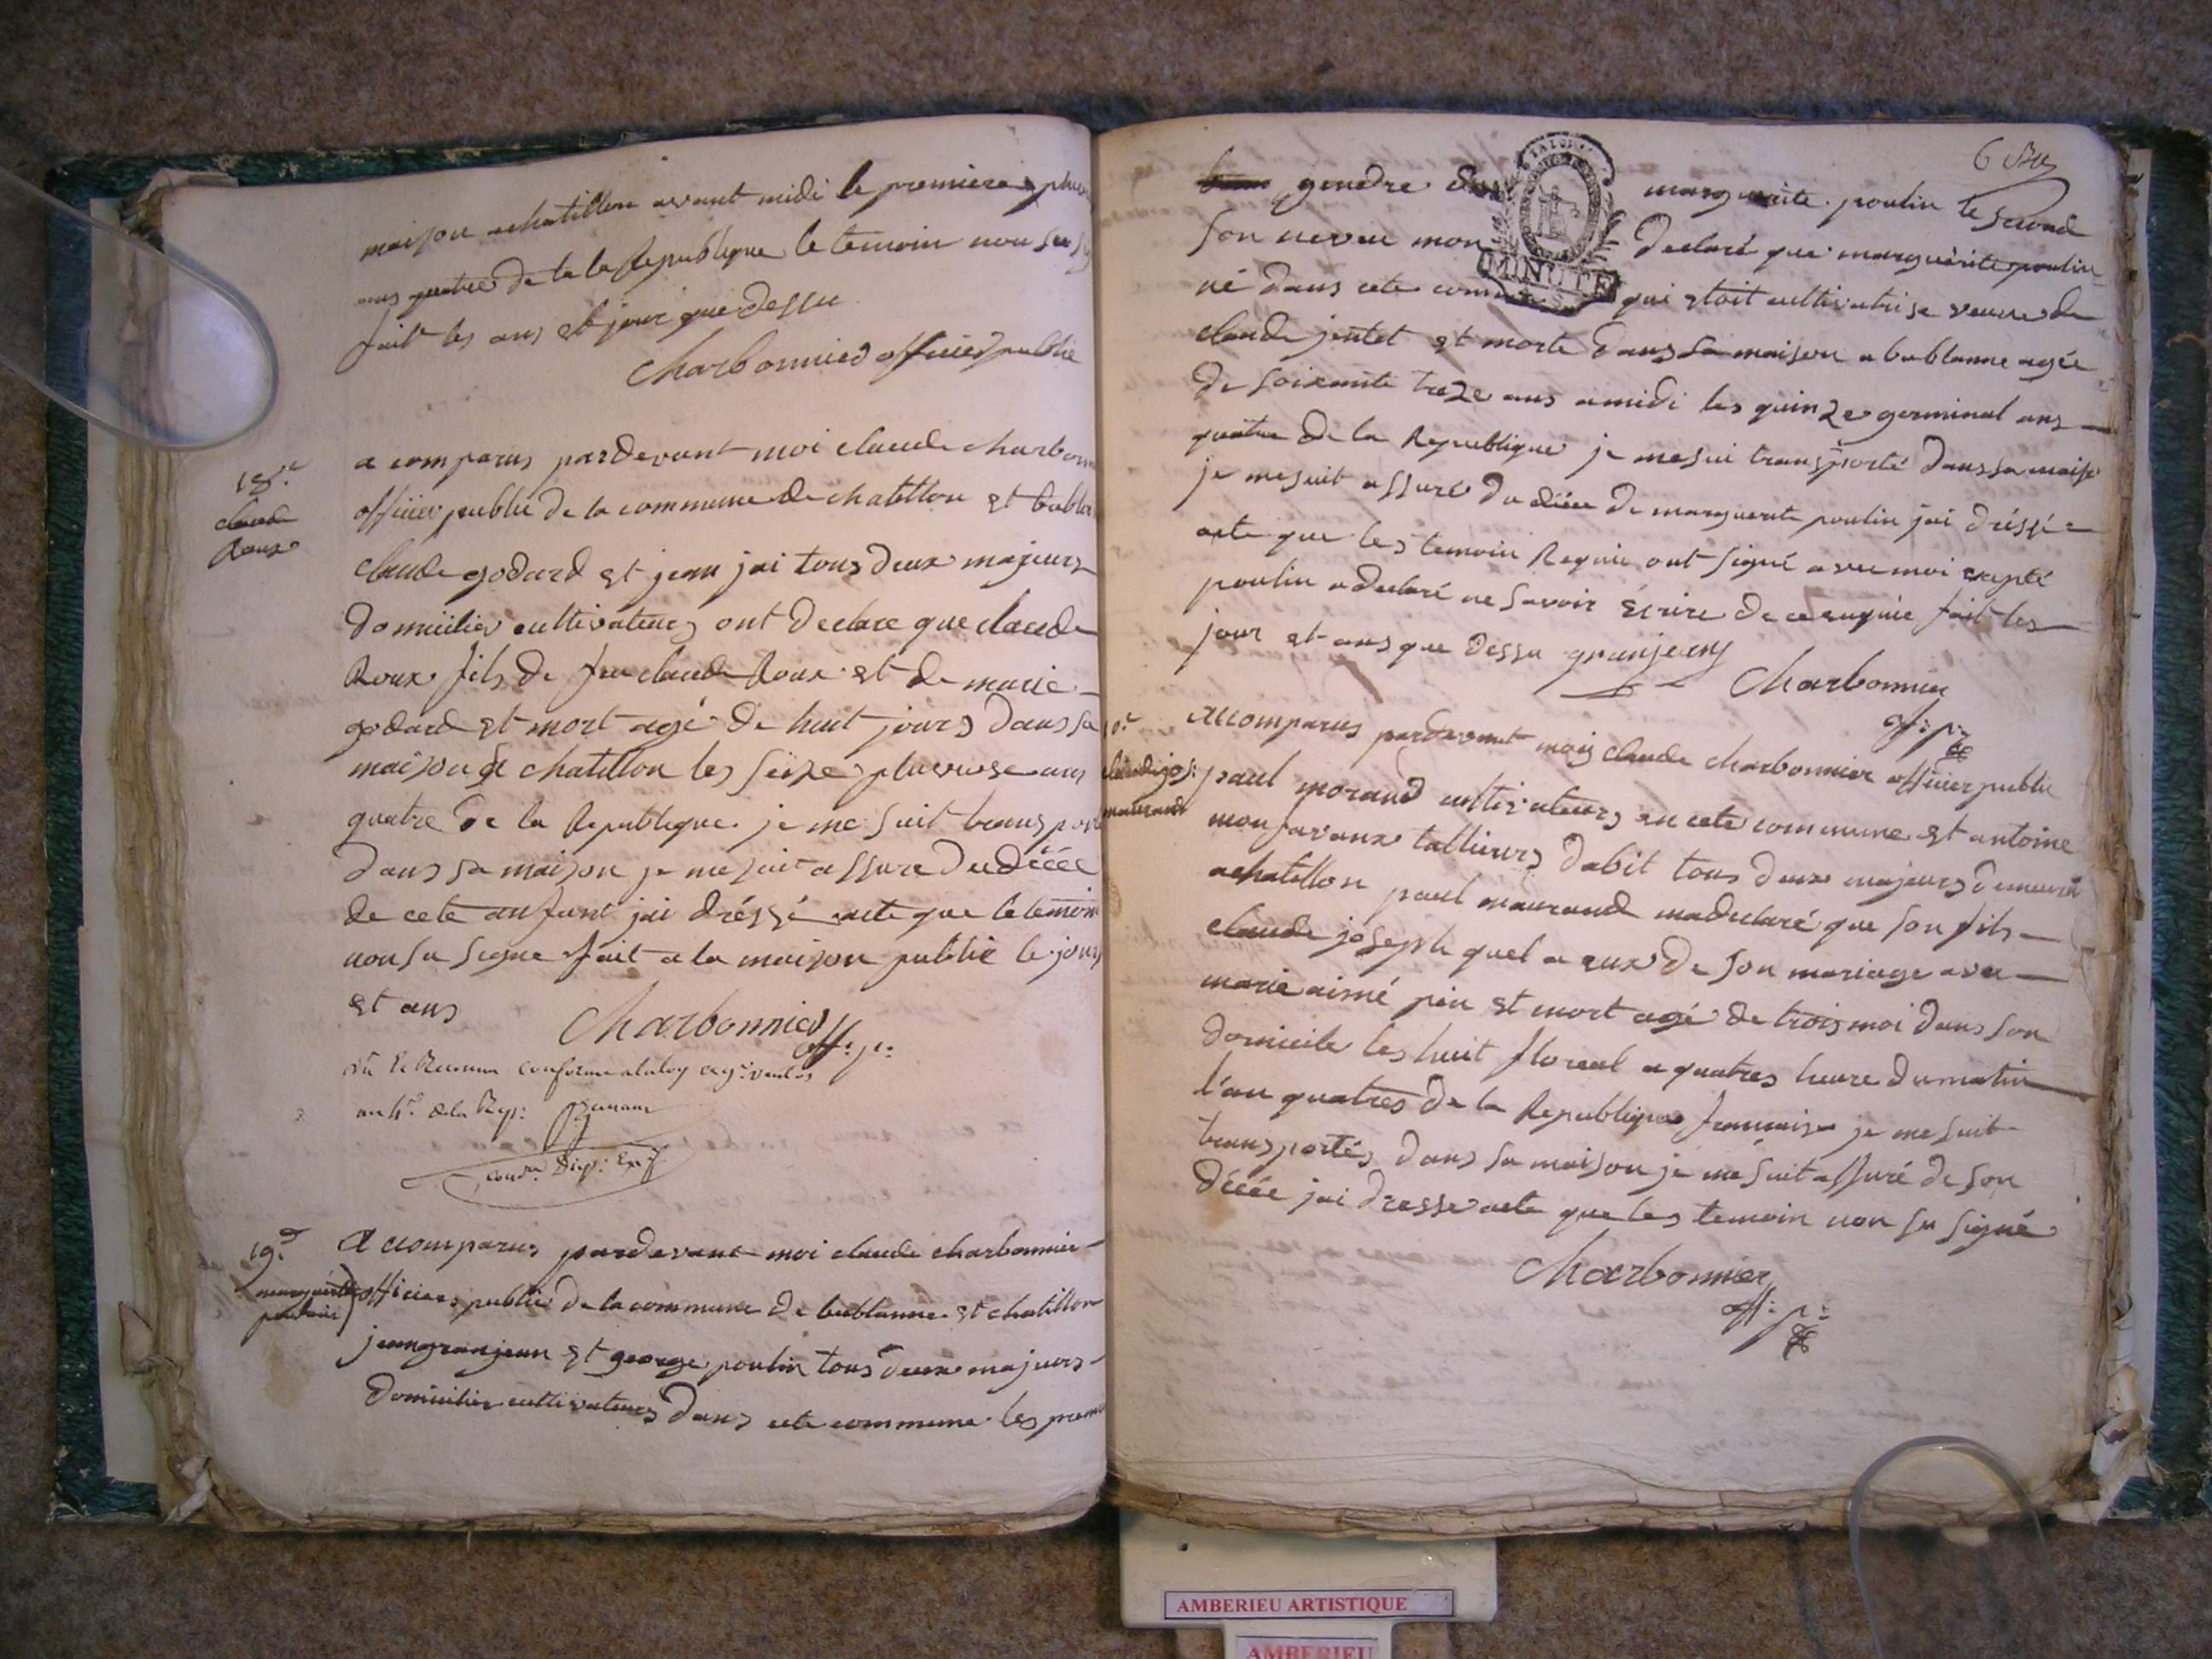 maison achatillon avant midi le premiere pluv
ans quatre de la la Republique le temoin non su sig
fait les ans et jour que dessu
Charbonnier officier public
18.e
claude
Roux
a comparus pardevant moi claude charbonn
officier public de la commune de chatillon et bubla
claude godard et jean jai tous deux majeurs
domicilier cultivateurs ont declare que claude
Roux fils de feu claude Roux et de marie
godard et mort agé de huit jours dans sa
maison a chatillon les seize pluviose ans
quatre de la Republique je me suit transpor
dans sa maison je me suit assure du décéé
de cete anfant jai dréssé acte que le temoin
non su signe fait a la maison public le jour
et ans
Charbonnier off: p:
an 4.e de la Rep:
19.e
marguerite
poulin
a comparus pardevant moi claude charbonnier
officiers public de la commune de bublanne et chatillon
jean granjean et george poulin tous deux majeurs
domicilier cultivateurs dans cete commune les premie
6
gendre de marguerite poulin le second
son neveu mon declaré que marguerite poulin
né dans cete comm qui etoit cultivatrise veuve de
claude jentet et morte dans sa maison a bublanne agée
de soixante treze ans a midi les quinze germinal ans
quatre de la Republique je me sui transporté dans sa maiso
je me suit assuré du décéé de marguerite poulin jai dréssé
acte que les temoin Requie ont signé avec moi exepté
poulin a declaré ne savoir écrire de ce enquie fait les
jour et ans que dessu granjean
Charbonnier
off: p:
claude jos:
maurand
a comparus pardevant moi claude charbonnier officier public
paul morand cultivateurs en cete commune et antoine
monfavoux tallieurs dabit tous deux majeurs demeuré
achatillon paul maurand ma declaré que son fils
claude joseph quel a eux de son mariage avec
marie aimé pin et mort agé de trois moi dans son
domicile les huit floreal a quatres heure du matin
l'an quatres de la Republique francaise je me suit
transportés dans sa maison je me suit assuré de son
décéé jai dresse acte que les temoin non su signé
Charbonnier
off: p:
MINUTE
AMBERIEU ARTISTIQUE
AMBERIEU